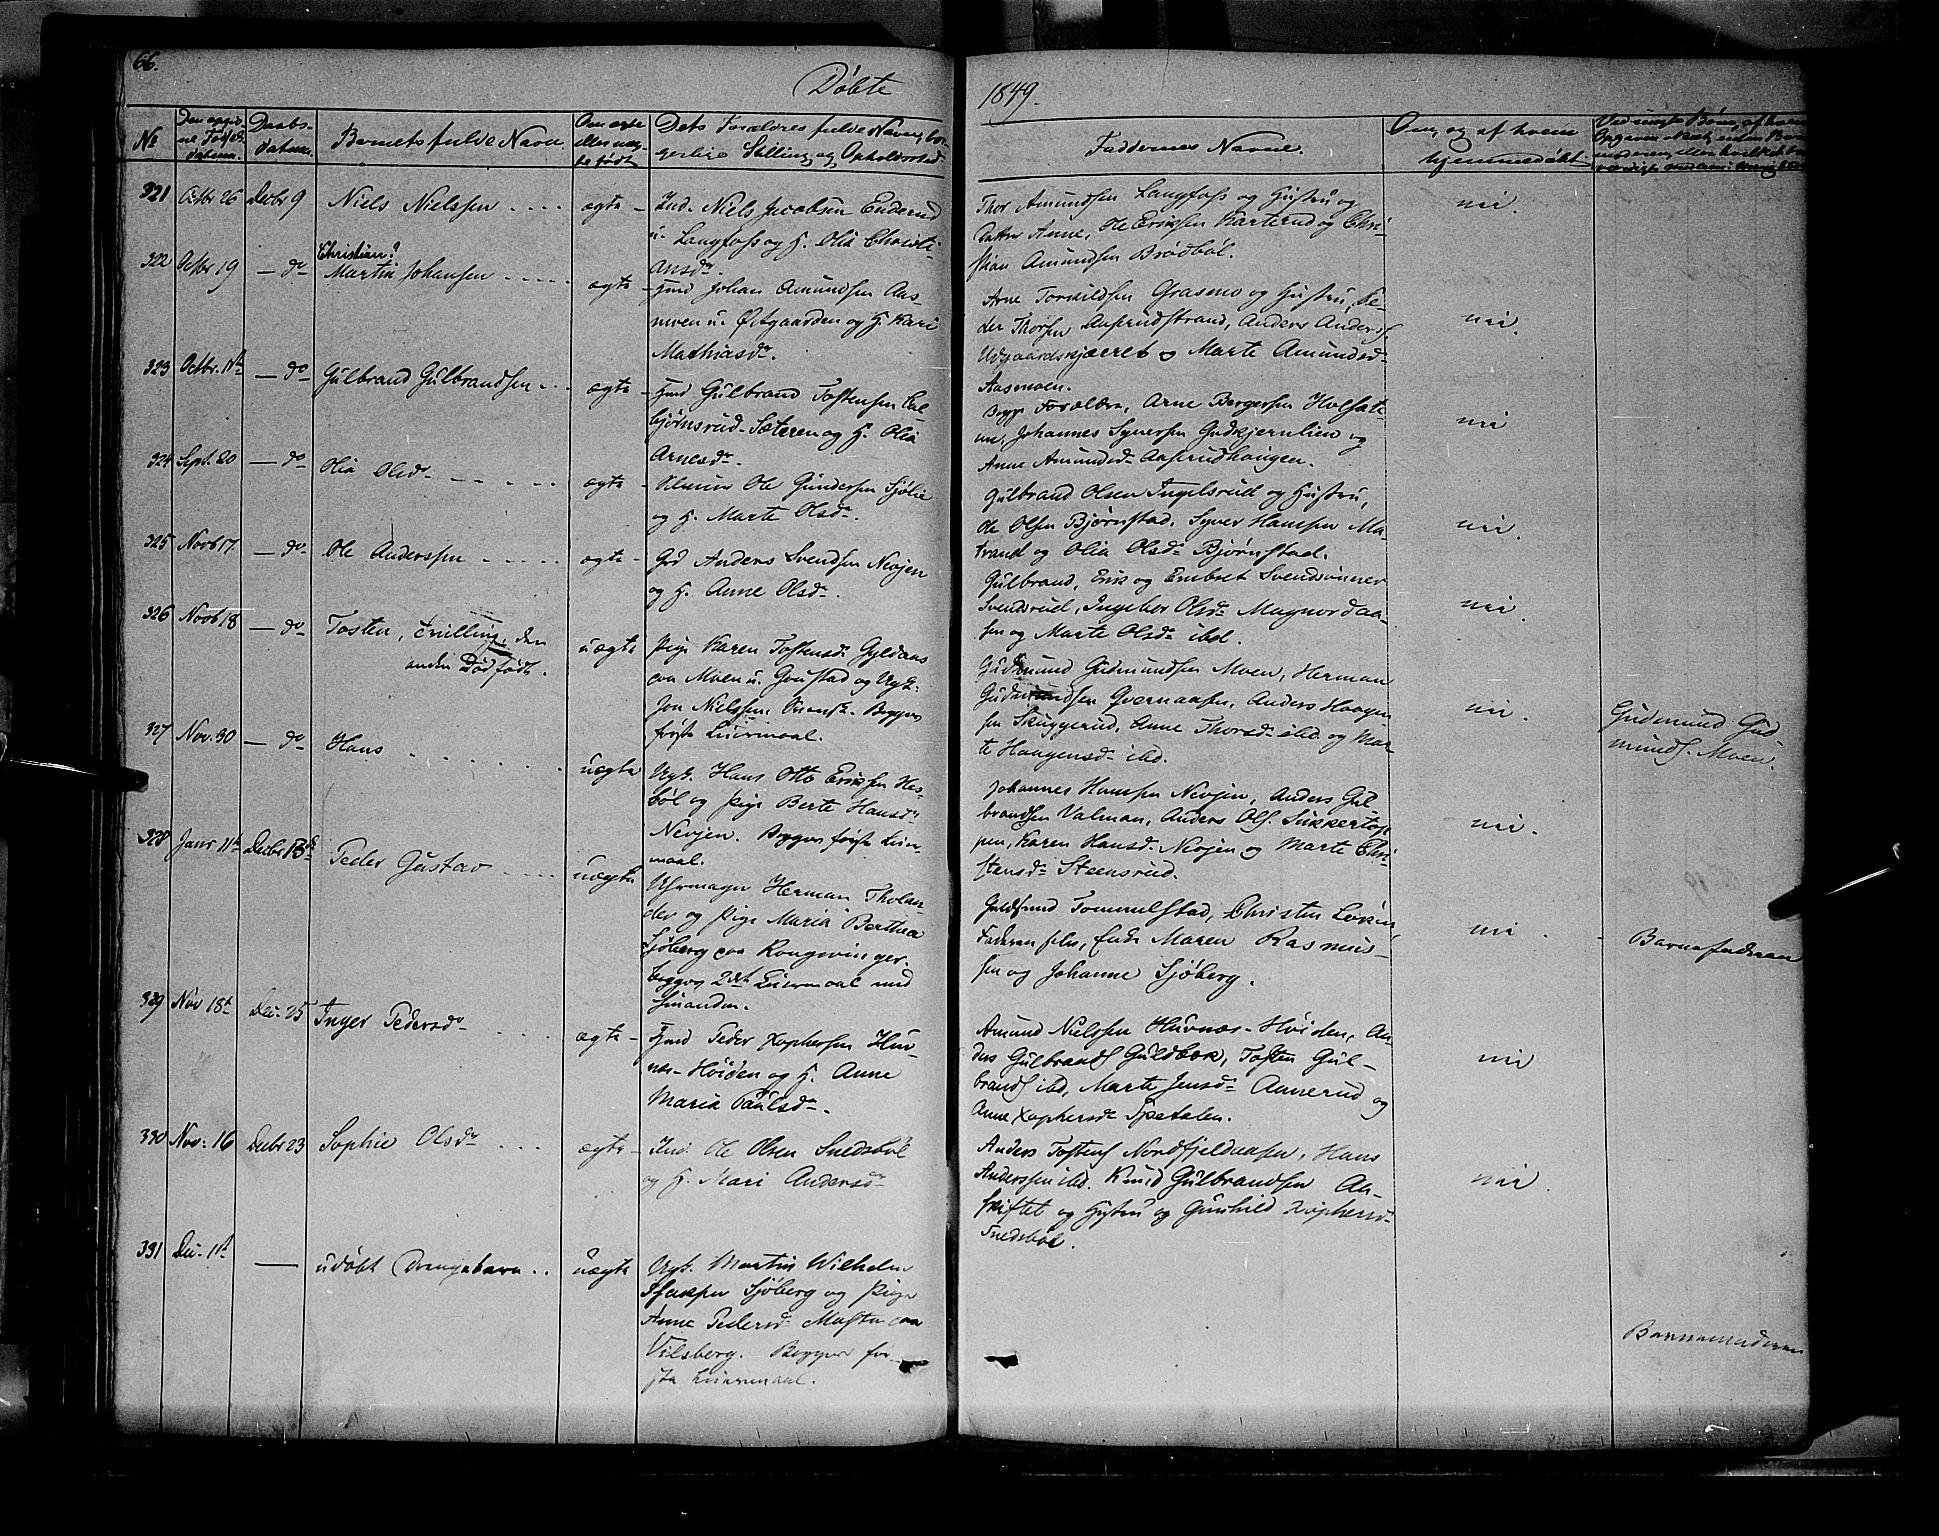 66.
Döbte
1849.
No
Daabs-
datum.
Barnets fulde Navn
Om ægte
eller uæg-
te født
Dets Forældres fulde Navne, bor-
gerlige Stilling og Opholdssted
Faddernes Navne.
Om, og af hvem
hjemmedøbt.
321 Octbr 26 Decbr 9 Niels Nielssen ægte Ind. Niels Jacobsen Enderud
u. Langfoss og H. Olia Christi-
ansdr.
Thor Amundsen Langfoss og Hustru og
Datter Anne, Ole Eriksen Karterud og Chri-
stian Amundsen Brødbøl.
nei.
322 Octbr 19 — do Christian?
Martin Johansen ægte Gmd Johan Amundsen Aas-
moen u. Østgaarden og H. Kari
Mathiasdr.
Arne Torkildsen Grasmo og Hustru, Pe-
der Thorsen Aaserudstrand, Anders Anders.
Udgaardskjæret og Marte Amundsd
Aasmoen.
nei.
323 Octbr. 11te — do Gulbrand Gulbrandsen ægte Gmd Gulbrand Tostensen
bjørnsrud-Sæteren og H. Olia
Arnesdr.
Begge Forældre, Arne Bergersen Holsæte-
en, Johannes Synersen Gudkjernlien og
Anne Amundsd Aaserudhaugen.
nei
324 Sept. 20 — do Olia Olsdr ægte Ole Gundersen Sjølie
og H. Marte Olsdr.
Gulbrand Olsen Ingelsrud og Hustru,
Ole Olsen Bjørnstad, Syver Hansen Ma-
trand og Olia Olsdr Bjørnstad.
nei.
325 Novb 17. — do Ole Anderssen ægte Grd Anders Svendsen Nevjen
og H. Anne Olsdr.
Gulbrand, Erik og Embret Svendsønner
Svendsrud, Ingebor Olsdr Magnordaa-
sen og Marte Olsdr ibd.
nei.
326 Novb 18 — do Tosten, tvilling, den
anden Dødfødt. uægte Pige Karen Tostensd. Gyldaas
paa Moen u. Grustad og Ugk.
Jon Nielssen. Begges
første Leiermaal.
Gudmund Gudmundsen Moen, Herman
Gudmundsen Qvernaasen, Anders Haagen-
sen Skuggerud, Anne Thorsd ibd og Mar-
te Haagensd ibd.
nei.
Gudmund Gud
munds. Moen.
327 Nov. 30 — do Hans uægte Ugk. Hans Otto Eriksen Hes-
bøl og Pige Berte Hansdr
Nevjen. Begges første Leier-
maal.
Johannes Hansen Nevjen, Anders Gul-
brandsen Valman, Anders Ols. Sukkertop-
pen, Karen Hansd. Nevjen og Marte Chri-
stensd Steensrud.
nei.
328 Janr 11te Decbr 13de Peder Gustav uægte Uhrmager Herman Tholan-
der og Pige Maria Berthea
Sjøberg paa Kongsvinger.
begges 2det Leiermaal med
hinanden.
Guldsmed Tommelstad, Christen
Faderen selv, Enke Maren Rasmus-
sen og Johanne Sjøberg.
nei
Barnefaderen
329 Nov 18de Dec. 25 Inger Pedersdr ægte Gmd Peder Xophersen Hur-
næs-Høiden og H. Anne
Maria Paulsdr.
Amund Nielsen Hurnæs-Høiden, An-
ders Gulbrands Guldbæk, Tosten Gul-
brands ibd, Marte Jensdr Annerud og
Anne Xophersdr Spetalen.
nei
330 Nov. 16 Decbr 23 Sophie Olsdr ægte Ind. Ole Olsen Snedsbøl
og H. Mari Andersdr
Anders Tostens Nordfjeldaasen, Hans
Anderssen ibd. Knud Gulbrandsen Aa-
skiftet og Hustru og Gunhild Xophersd
Snedsbøl.
nei.
331 Dec. 11te — udøbt Drengebarn uægte Ugk. Martin Wilhelm
Sjøberg og Pige
Anne Pedersd. Masta paa
Vilsberg. Begges før-
ste Leiermaal.
Barnemoderen